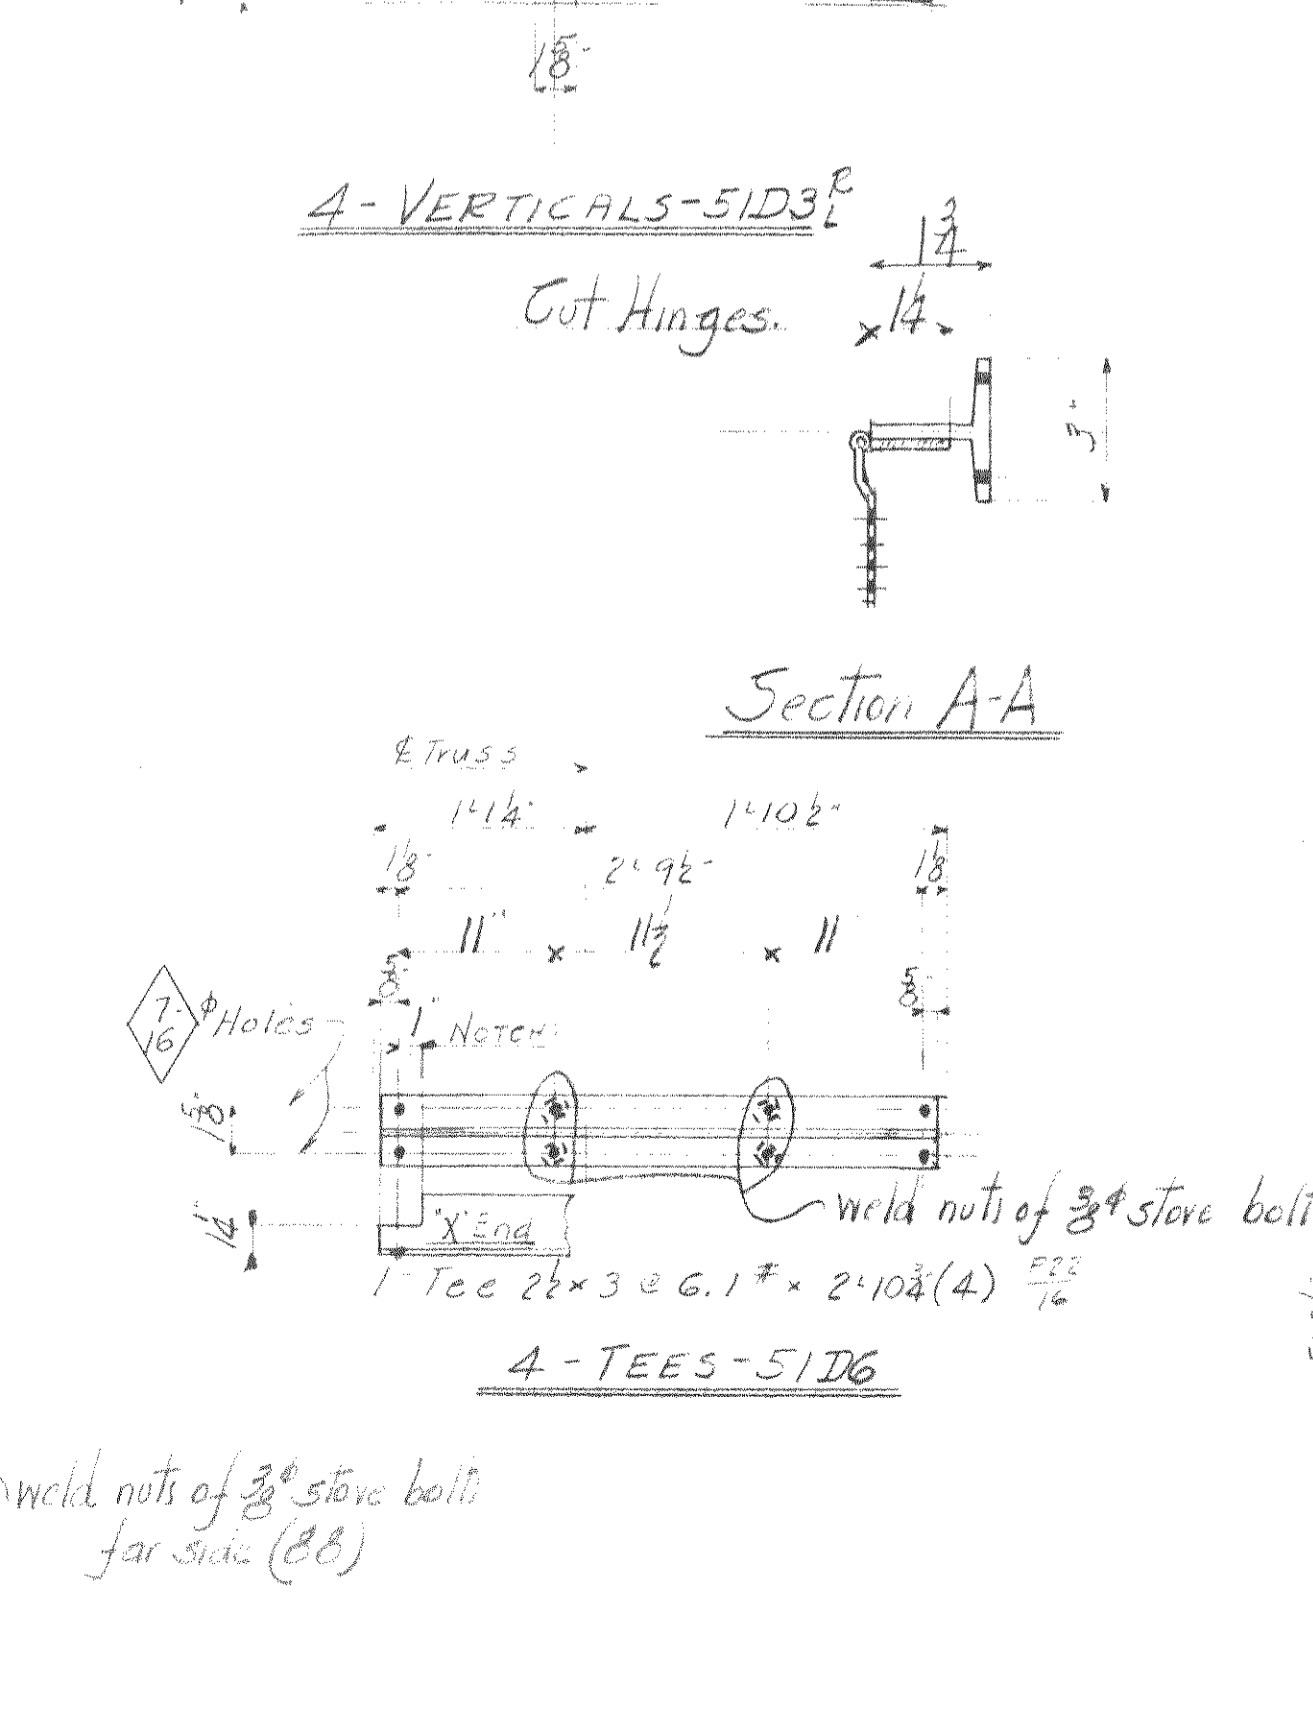 1 5/8"
4-VERTICALS-51D3 R/L
Cut Hinges.
1 3/4
1 1/4
3"
Section A-A
℄ Truss
1'-1 1/4" 1'-10 1/2"
1 1/8" 2'-9 1/2" 1 1/8"
11" 11 1/2 11
5/8" 5/8"
1" NOTCH
7-16 ϕ Holes
1 5/8"
1 1/4"
"X" End
weld nuts of 3/8 ϕ stove bolt
1-Tee 2 1/2 x 3 @ 6.1# x 2'-10 3/4 (4) F22/16
4-TEES-51D6
weld nuts of 3/8 ϕ stove bolts
far side (88)